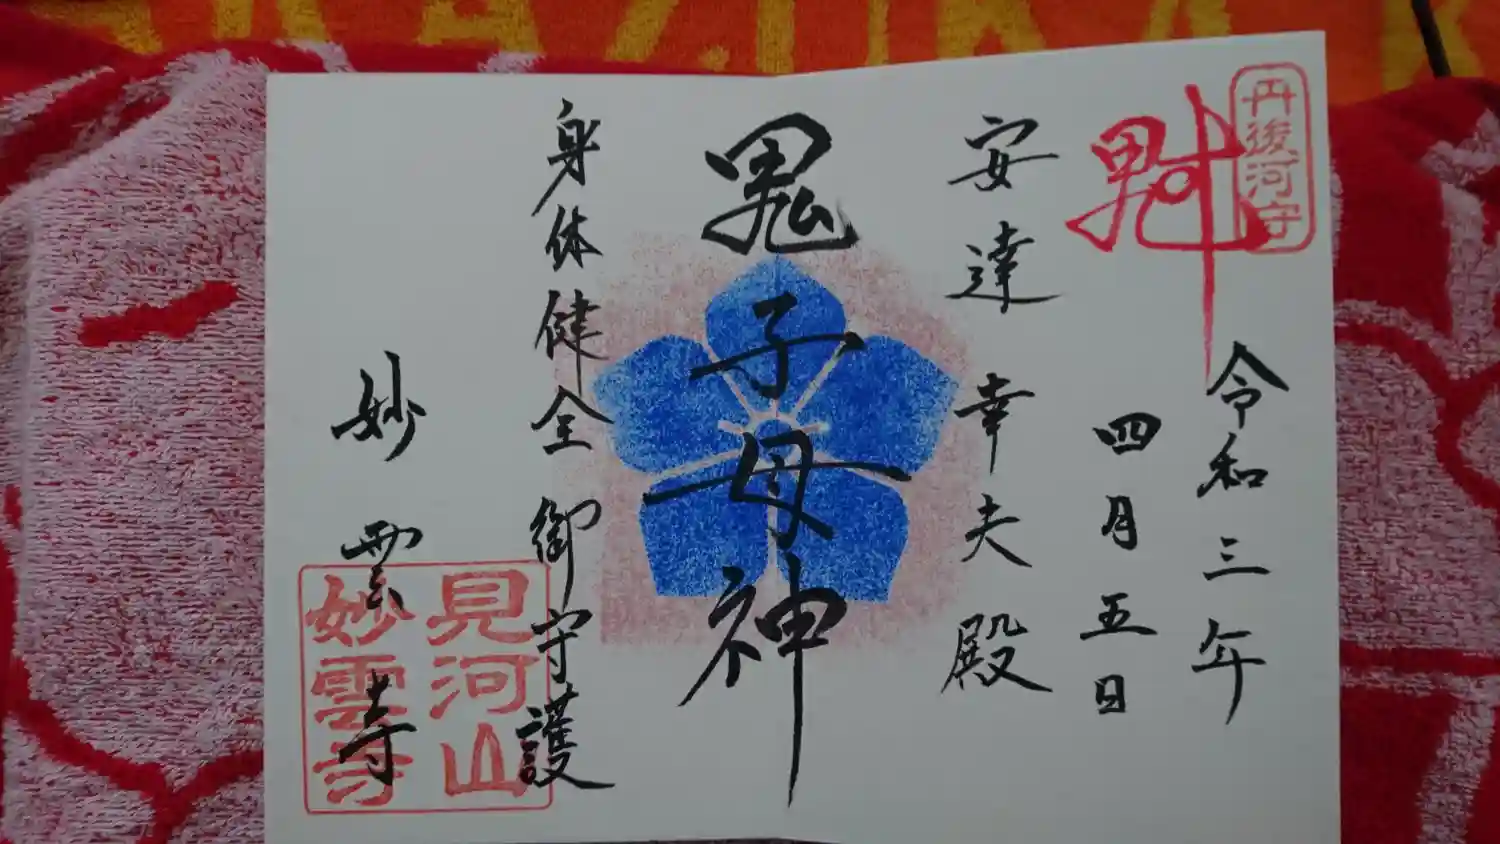 丹後河守
令和三年
四月五日
安達幸夫殿
鬼子母神
身体健全御守護
妙雲寺
見河山
妙雲寺